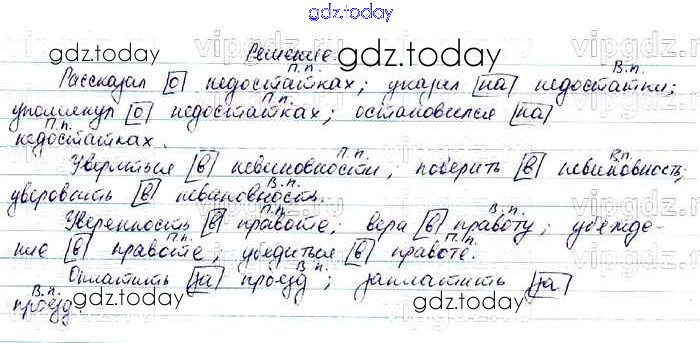 gdz.today
Решение.
gdz.today gdz.today vipgdz.ru
П.п. В.п.
Рассказал [о] недостатках; указал [на] недостатки;
П.п.
упомянул [о] недостатках; остановился [на]
П.п.
недостатках.
П.п. В.п.
Увериться [в] невиновности; поверить [в] невиновность,
В.п.
уверовать [в] невиновность.
П.п. В.п.
Уверенность [в] правоте; вера [в] правоту; убежде-
П.п. П.п.
ние [в] правоте; убедиться [в] правоте.
В.п.
Оплатить [за] проезд; заплатить [за]
В.п.
проезд.
gdz.today gdz.today